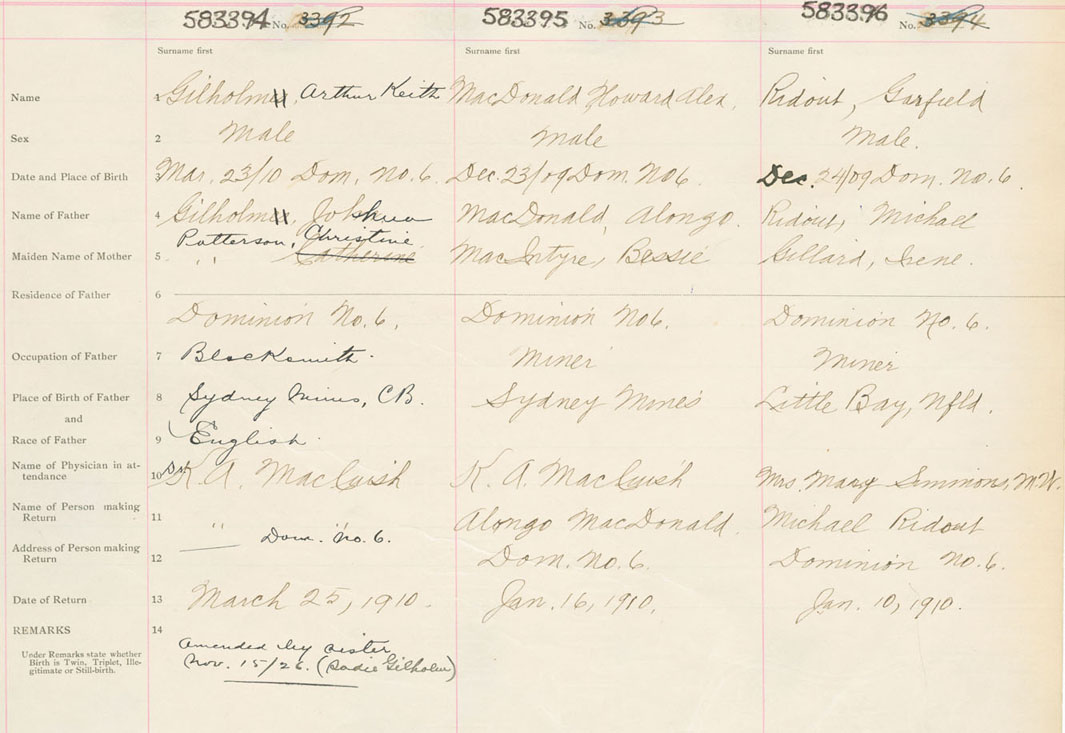 583394 No. 3392 583395 No. 3393 583396 No. 3394
Surname first Surname first Surname first
Name 1 Gilholm, Arthur Keith MacDonald Howard Alex. Ridout, Garfield
Sex 2 Male Male Male.
Date and Place of Birth 3 Mar. 23/10 Dom. No. 6. Dec. 23/09 Dom. No 6. Dec. 24/09 Dom. No. 6.
Name of Father 4 Gilholm, Joshua MacDonald, Alongo. Ridout, Michael
Patterson, Christine
Maiden Name of Mother 5 " Catherine MacIntyre, Bessie Gillard, Irene.
Residence of Father 6
Dominion No. 6. Dominion No 6. Dominion No. 6.
Occupation of Father 7 Blacksmith. Miner Miner
Place of Birth of Father 8 Sydney Mines, C.B. Sydney Mines Little Bay, Nfld.
and
Race of Father 9 English.
Name of Physician in at- 10 Dr. K. A. MacCuish K. A. MacCuish Mrs. Mary Simmons, M.W.
tendance
Name of Person making 11 " " Alongo MacDonald. Michael Ridout
Return
Dom. No. 6.
Address of Person making 12 Dom. No. 6. Dominion No. 6.
Return
Date of Return 13 March 25, 1910. Jan. 16, 1910. Jan. 10, 1910.
REMARKS 14
Under Remarks state whether
Birth is Twin, Triplet, Ille-
gitimate or Still-birth.
Amended by sister
Nov. 15/26. (Sadie Gilholm)